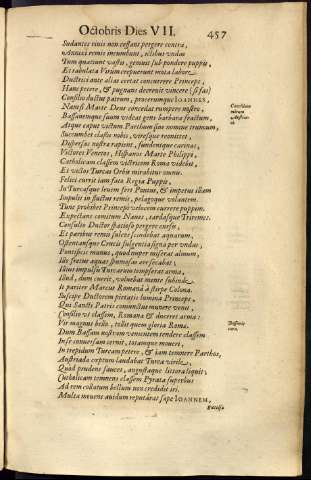 Octobris Dies VII. 457
Sudantes remis non cessans pergere contra,
Annixi remis incumbunt, ictibus undae
Tum quatiunt vastis, gemitus sub pondere puppis,
Et tabulata Virum crepuerunt mota labore.
Ductrici ante alias certat concurrere Princeps,
Hanc petere, & pugnans devenit vincere (si fas)
Consilio ductus patrum, procerumque IOANNES,
Namsi Marte Deus concedat rumpere nostro,
Bassanemque suum videat gens barbara fractum,
Atque caput victum Parthum sine nomine truncum,
Succumbet classis nobis, viresque remittet,
Dispersas nostra rapient, fundentque carinas,
Victores Venetos, Hispanos Marte Philippi,
Catholicam classem victricem Roma videbit,
Et victos Turcas Orbis mirabitur omnis.
Felici currit iam facta Regia Puppis,
In Turcasque levem fert Pontus, & impetus illam
Impulit in fluctus remis, pelagoque volantem.
Tunc prohibet Princeps velocem currere puppim.
Expectans comitum Naves, tardasque Triremes.
Consulto Ductor spatioso pergere cursu,
Et paribus remis sulcescandebat aquarum,
Ostentansque Crucis fulgentia signa per undas,
Pontificis munus, quod semper miserat almum,
Iste fretus aquas spumosas aere secabat:
Illius impulsu Turcarum tempserat arma,
Illud, dum currit, volvebat mente subinde.
It pariter Marcus Romanâ à stirpe Colona.
Suscipe Ductorem pietatis lumina Princeps,
Qui Sancti Patris communitus munere venit,
Consilio ut classem, Romana & duceret arma:
Vir magnus bello, tollit quem gloria Roma.
Dum Bassam nostram venientem tendere classem
In se conversam cernit, totamque moveri:
In trepidum Turcam petere, & iam temnere Parthos,
Austriadæ cœptum laudabat Turca virile,
Quod prudens fauces, angustaque littora liquit;
Catholicam temnens classem Pyrata superbus
Ad rem collatum bellum non credidit iri.
Multa movens avidum reputârat sæpe IOANNEM,